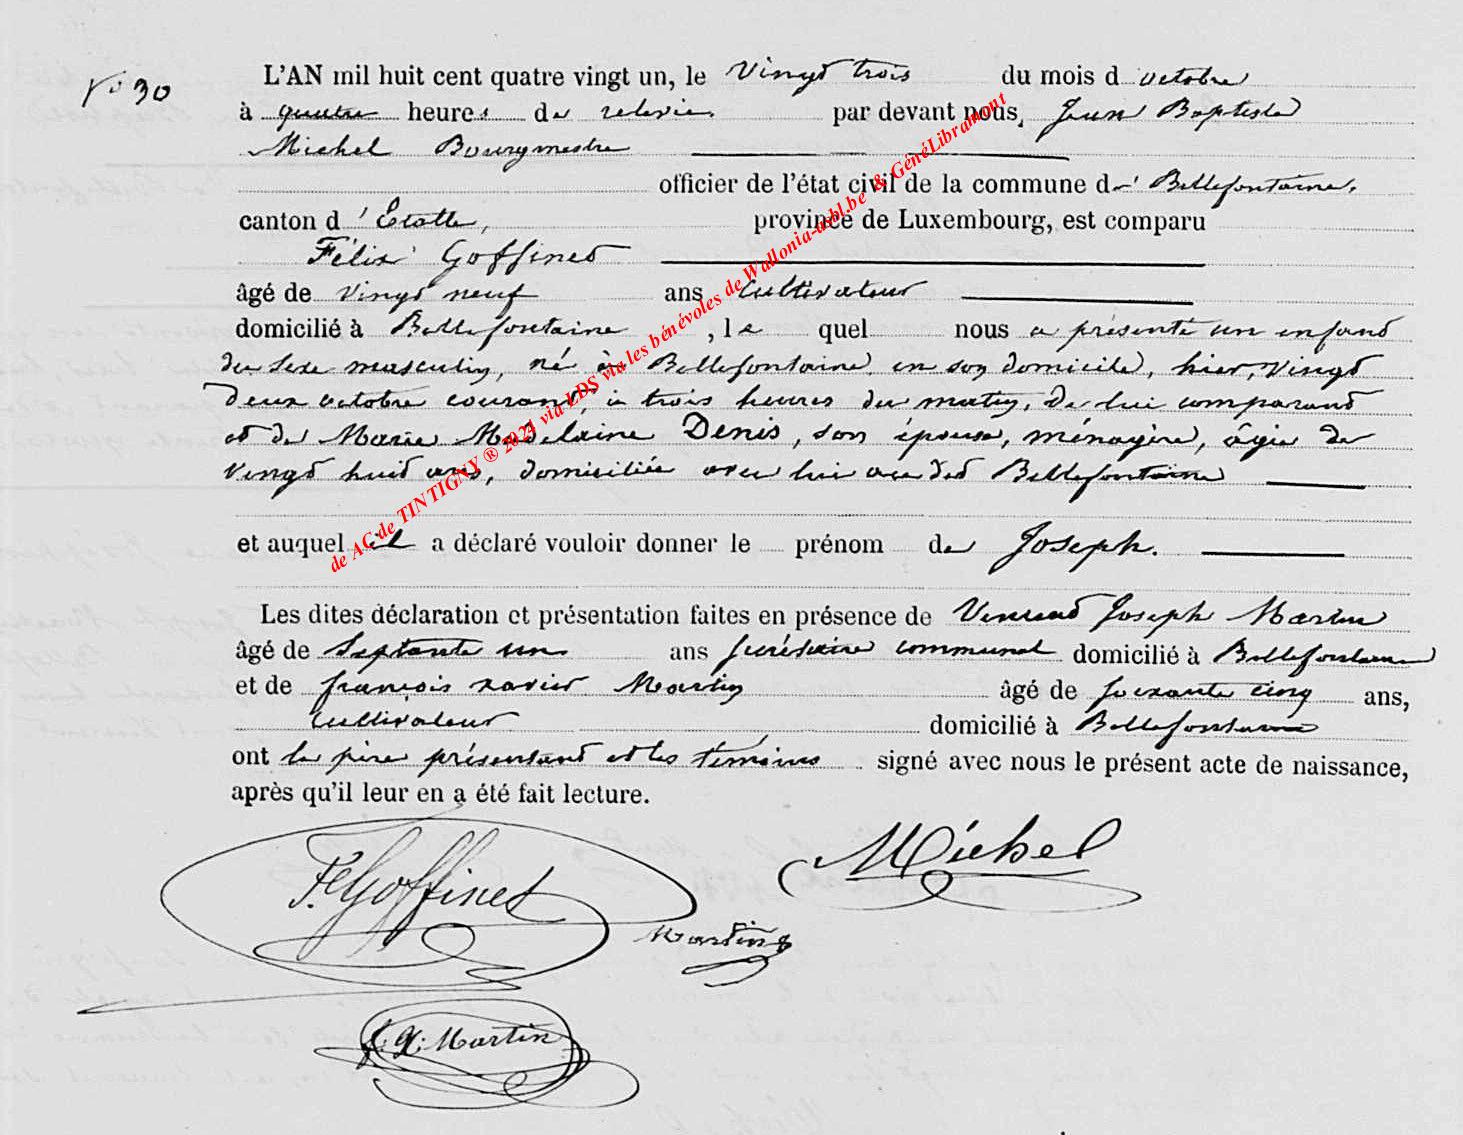 No 30
L'AN mil huit cent quatre vingt un, le Vingt trois du mois d octobre
à quatre heures de relevée par devant nous, Jean Baptiste
Michel Bourgmestre
officier de l'état civil de la commune de Bellefontaine,
canton d 'Etalle, province de Luxembourg, est comparu
Félix Goffinet
âgé de vingt neuf ans cultivateur
domicilié à Bellefontaine , le quel nous a présenté un enfant
du sexe masculin, né à Bellefontaine en son domicile, hier, vingt
deux octobre courant, à trois heures du matin, de lui comparant
et de Marie Madelaine Denis, son épouse, ménagère, âgée de
vingt huit ans, domiciliée avec lui au dit Bellefontaine
et auquel il a déclaré vouloir donner le prénom de Joseph.
Les dites déclaration et présentation faites en présence de Joseph Martin
âgé de septante un ans secrétaire communal domicilié à Bellefontaine
et de françois xavier Martin âgé de soixante cinq ans,
cultivateur domicilié à Bellefontaine
ont le père présentant et les témoins signé avec nous le présent acte de naissance,
après qu'il leur en a été fait lecture.
Michel
F. Goffinet
Martin
f. X. Martin
de AC de TINTIGNY ® 2021 via LDS via les bénévoles de Wallonia-asbl.be & GénéLibramont